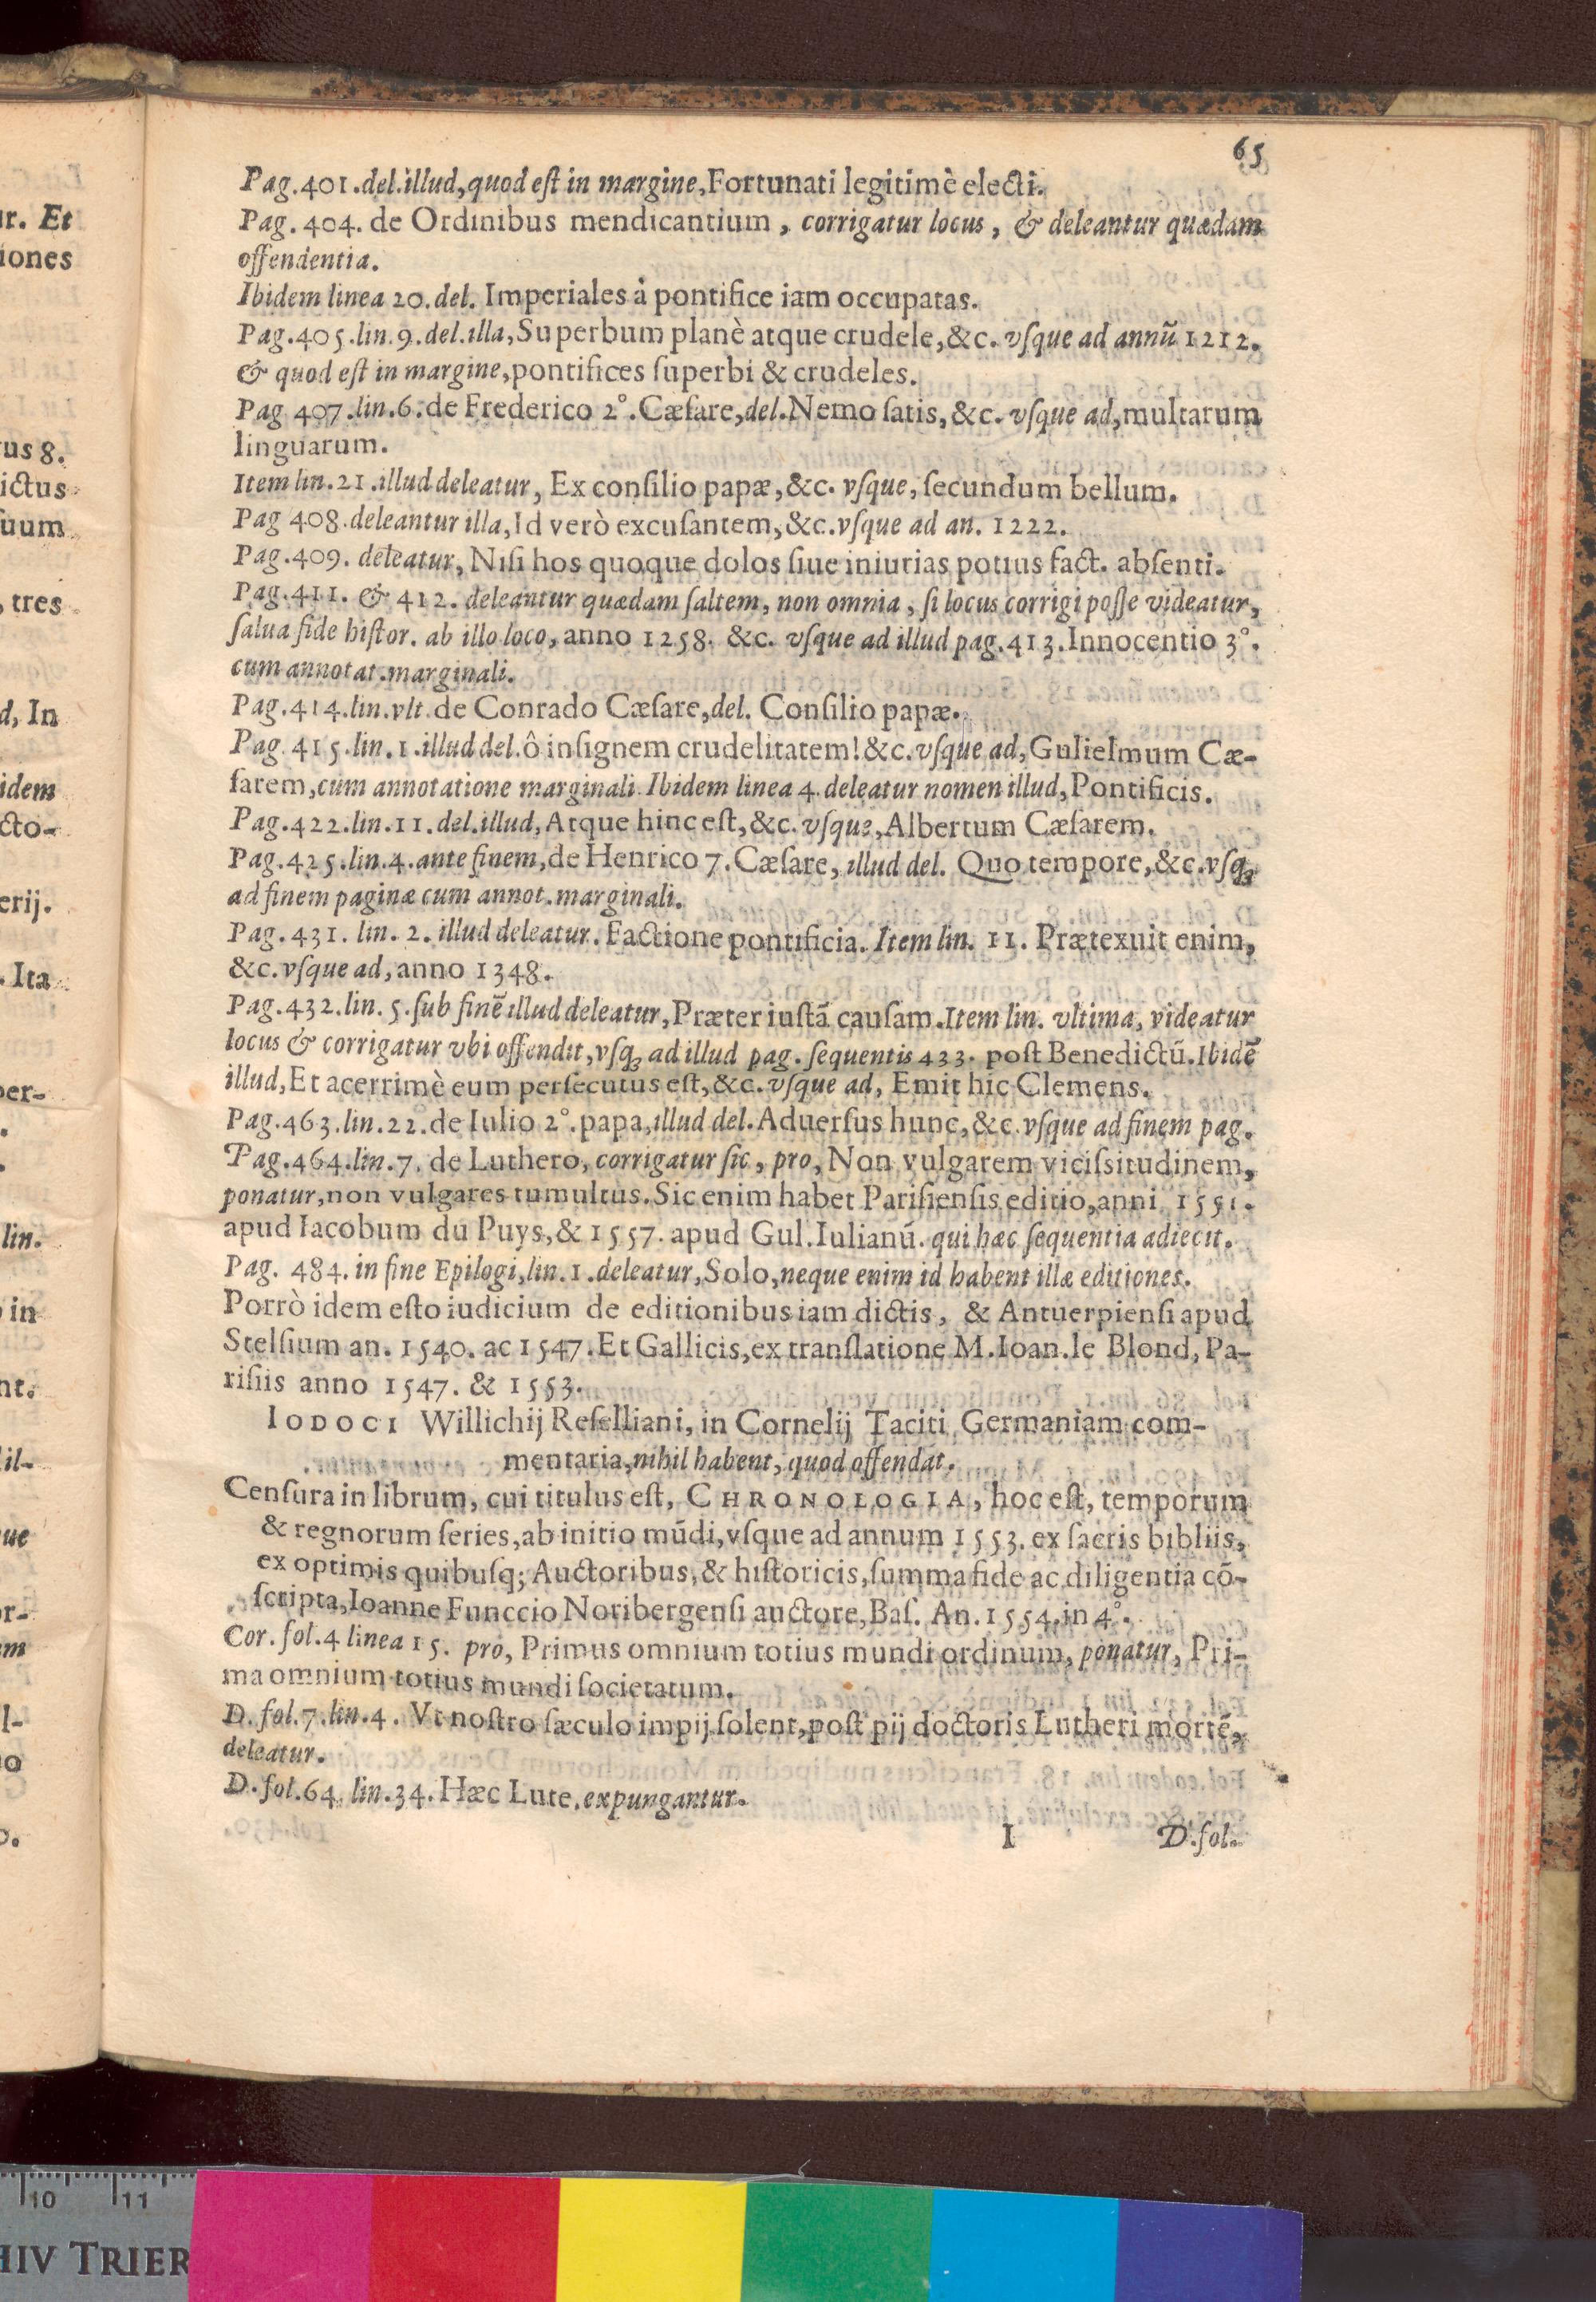 65
Pag.401.del.illud,quod eſt in margine,Fortunati legitimè electi.
Pag. 404. de Ordinibus mendicantium, corrigatur locus, & deleantur quædam
offendentia.
Ibidem linea 20.del. Imperiales à pontifice iam occupatas.
Pag.405.lin.9.del.illa,Superbum planè atque crudele,&c. vſque ad annū 1212.
& quod eſt in margine,pontifices ſuperbi & crudeles.
Pag 407.lin.6.de Frederico 2°.Cæſare,del.Nemo ſatis,&c. vſque ad,multarum
linguarum.
Item lin.21.illud deleatur, Ex conſilio papæ,&c. vſque, ſecundum bellum.
Pag 408.deleantur illa,Id verò excuſantem,&c.vſque ad an. 1222.
Pag.409. deleatur, Niſi hos quoque dolos ſiue iniurias potius fact. abſenti.
Pag.411. & 412. deleantur quædam ſaltem, non omnia, ſi locus corrigi poſſe videatur,
ſalua fide hiſtor. ab illo loco, anno 1258. &c. vſque ad illud pag.413.Innocentio 3°.
cum annotat.marginali.
Pag.414.lin.vlt.de Conrado Cæſare,del. Conſilio papæ.
Pag. 415.lin.1.illud del.ô inſignem crudelitatem!&c.vſque ad,Gulielmum Cæ-
ſarem,cum annotatione marginali.Ibidem linea 4.deleatur nomen illud,Pontificis.
Pag.422.lin.11.del.illud, Atque hinc eſt,&c. vſque,Albertum Cæſarem.
Pag.425.lin.4.ante finem,de Henrico 7.Cæſare, illud del. Quo tempore,&c.vſqꝫ
ad finem paginæ cum annot.marginali.
Pag.431. lin. 2. illud deleatur. Factione pontificia. Item lin. 11. Prætexuit enim,
&c.vſque ad,anno 1348.
Pag.432.lin. 5.ſub finē illud deleatur,Præter iuſtā cauſam.Item lin. vltima, videatur
locus & corrigatur vbi offendit,vſqꝫ ad illud pag. ſequentis 433. poſt Benedictū.Ibidē
illud,Et acerrimè eum perſecutus eſt,&c.vſque ad, Emit hic Clemens.
Pag.463.lin.22.de Iulio 2°.papa,illud del.Aduerſus hunc,&c.vſque ad finem pag.
Pag.464.lin.7. de Luthero, corrigatur ſic, pro, Non vulgarem viciſsitudinem,
ponatur,non vulgares tumultus.Sic enim habet Pariſienſis editio,anni 1551.
apud Iacobum du Puys,& 1557. apud Gul.Iulianū. qui hæc ſequentia adiecit.
Pag. 484. in fine Epilogi,lin.1.deleatur,Solo,neque enim id habent illæ editiones.
Porrò idem eſto iudicium de editionibus iam dictis, & Antuerpienſi apud
Stelſium an. 1540. ac 1547.Et Gallicis,ex tranſlatione M.Ioan.le Blond, Pa-
riſiis anno 1547. & 1553.
IODOCI Willichij Reſelliani, in Cornelij Taciti Germaniam com-
mentaria,nihil habent, quod offendat.
Cenſura in librum, cui titulus eſt, CHRONOLOGIA, hoc eſt, temporum
& regnorum ſeries,ab initio mūdi,vſque ad annum 1553. ex ſacris bibliis,
ex optimis quibuſq; Auctoribus,& hiſtoricis,ſumma fide ac diligentia cō-
ſcripta,Ioanne Funccio Noribergenſi auctore,Baſ. An.1554.in 4°.
Cor.fol.4 linea 15. pro, Primus omnium totius mundi ordinum, ponatur, Pri-
ma omnium totius mundi ſocietatum.
D. fol.7.lin.4. Vt noſtro ſæculo impij ſolent,poſt pij doctoris Lutheri mortē,
deleatur.
D.fol.64. lin.34.Hæc Lute.expungantur.
I D.fol.
r. Et
iones
us 8.
ictus
ſuum
, tres
d, In
idem
cto-
erij.
. Ita
per-
lin.
in
nt.
il-
ue
or-
m
l-
10 11
HIV TRIER